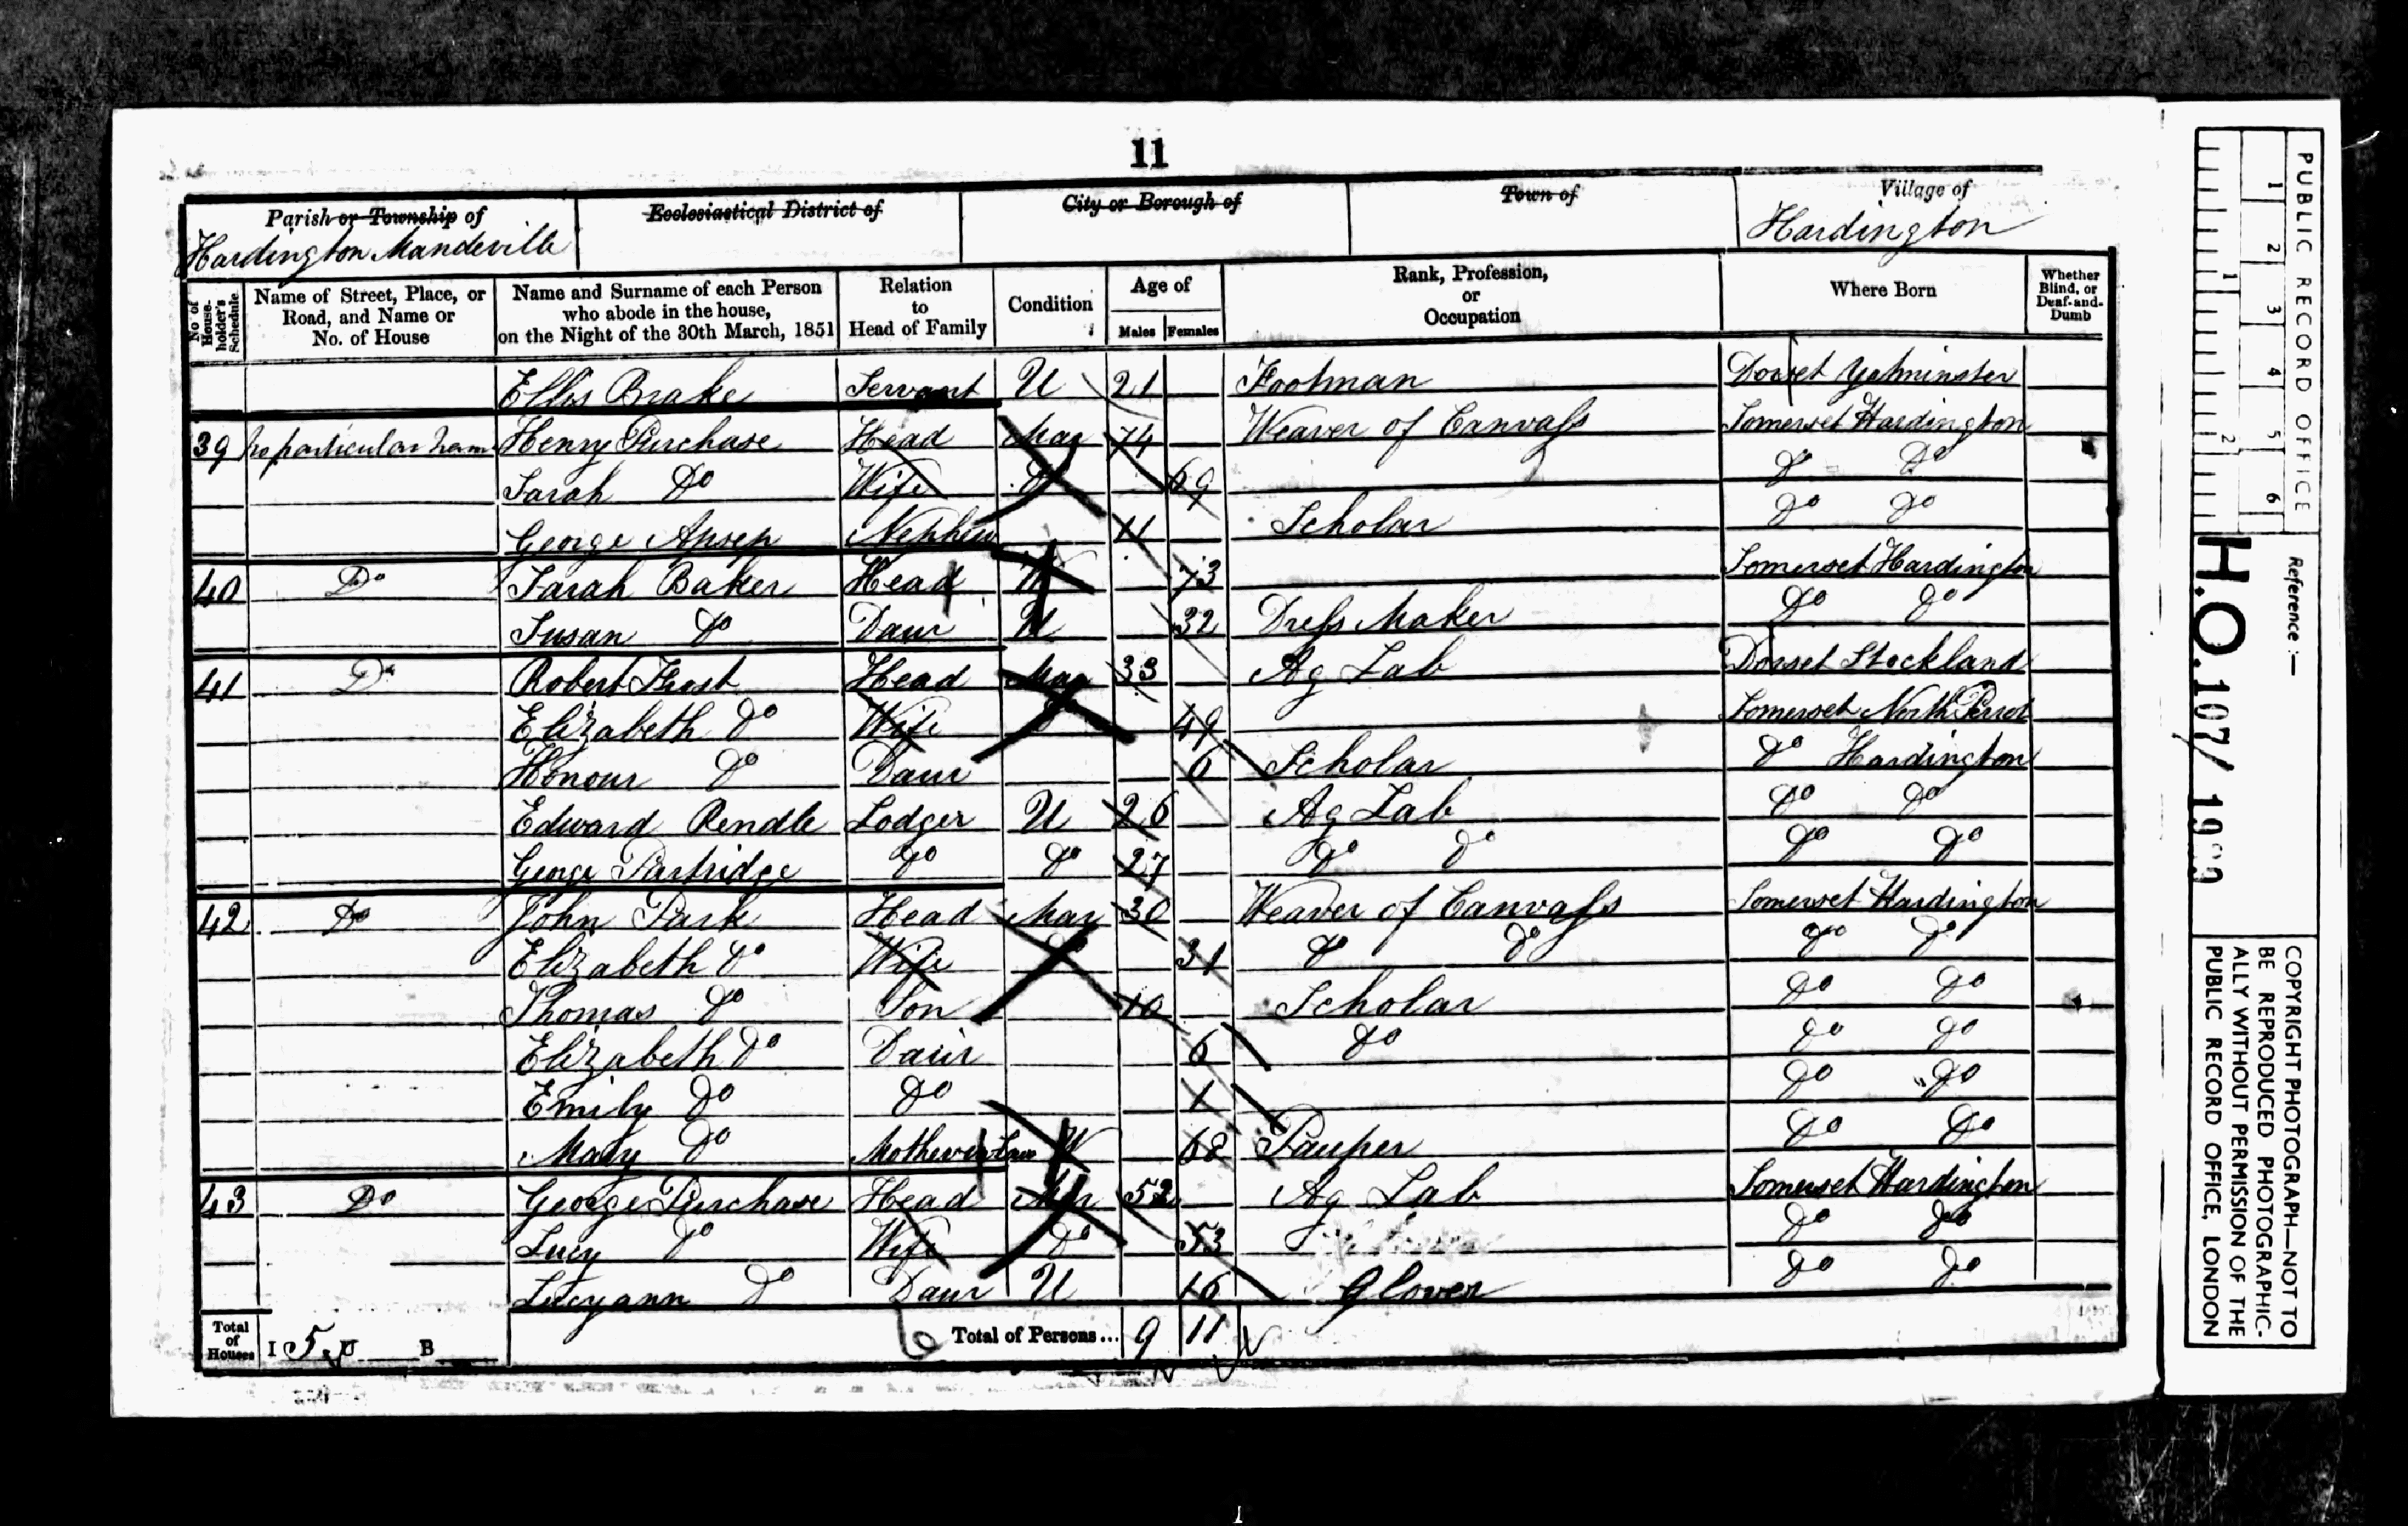 11
Parish or Township of
Hardington Mandeville
Ecclesiastical District of
City or Borough of
Town of
Village of
Hardington
No. of House-holder's Schedule
Name of Street, Place, or Road, and Name or No. of House
Name and Surname of each Person who abode in the house, on the Night of the 30th March, 1851
Relation to Head of Family
Condition
Age of
Males Females
Rank, Profession, or Occupation
Where Born
Whether Blind, or Deaf-and-Dumb
Ellis Brake Servant U 21 Footman Dorset Yetminster
39 No particular name Henry Purchase Head Mar 74 Weaver of Canvass Somerset Hardington
Sarah Do Wife Do 69 Do Do
George Apsey Nephew 11 Scholar Do Do
40 Do Sarah Baker Head W 73 Somerset Hardington
Susan Do Daur U 32 Dress Maker Do Do
41 Do Robert Frost Head Mar 33 Ag Lab Dorset Stockland
Elizabeth Do Wife Do 49 Somerset North Perrot
Honour Do Daur 6 Scholar Do Hardington
Edward Rendle Lodger U 26 Ag Lab Do Do
George Partridge Do Do 27 Do Do Do Do
42 Do John Park Head Mar 30 Weaver of Canvass Somerset Hardington
Elizabeth Do Wife Do 31 Do Do Do Do
Thomas Do Son 10 Scholar Do Do
Elizabeth Do Daur 6 Do Do Do
Emily Do Do 1 Do Do
Mary Do Mother in Law W 68 Pauper Do Do
43 Do George Purchase Head Mar 52 Ag Lab Somerset Hardington
Lucy Do Wife Do 53 Do Do
Lucyann Do Daur U 16 Glover Do Do
Total of Houses I 5 U B Total of Persons... 9 11
PUBLIC RECORD OFFICE
1 2 3 4 5 6
1 2
Reference :-
H.O. 107/
COPYRIGHT PHOTOGRAPH—NOT TO
BE REPRODUCED PHOTOGRAPHIC-
ALLY WITHOUT PERMISSION OF THE
PUBLIC RECORD OFFICE, LONDON